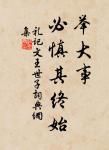 舉大事
必慎其終始
禮記文王世子詞典網
集